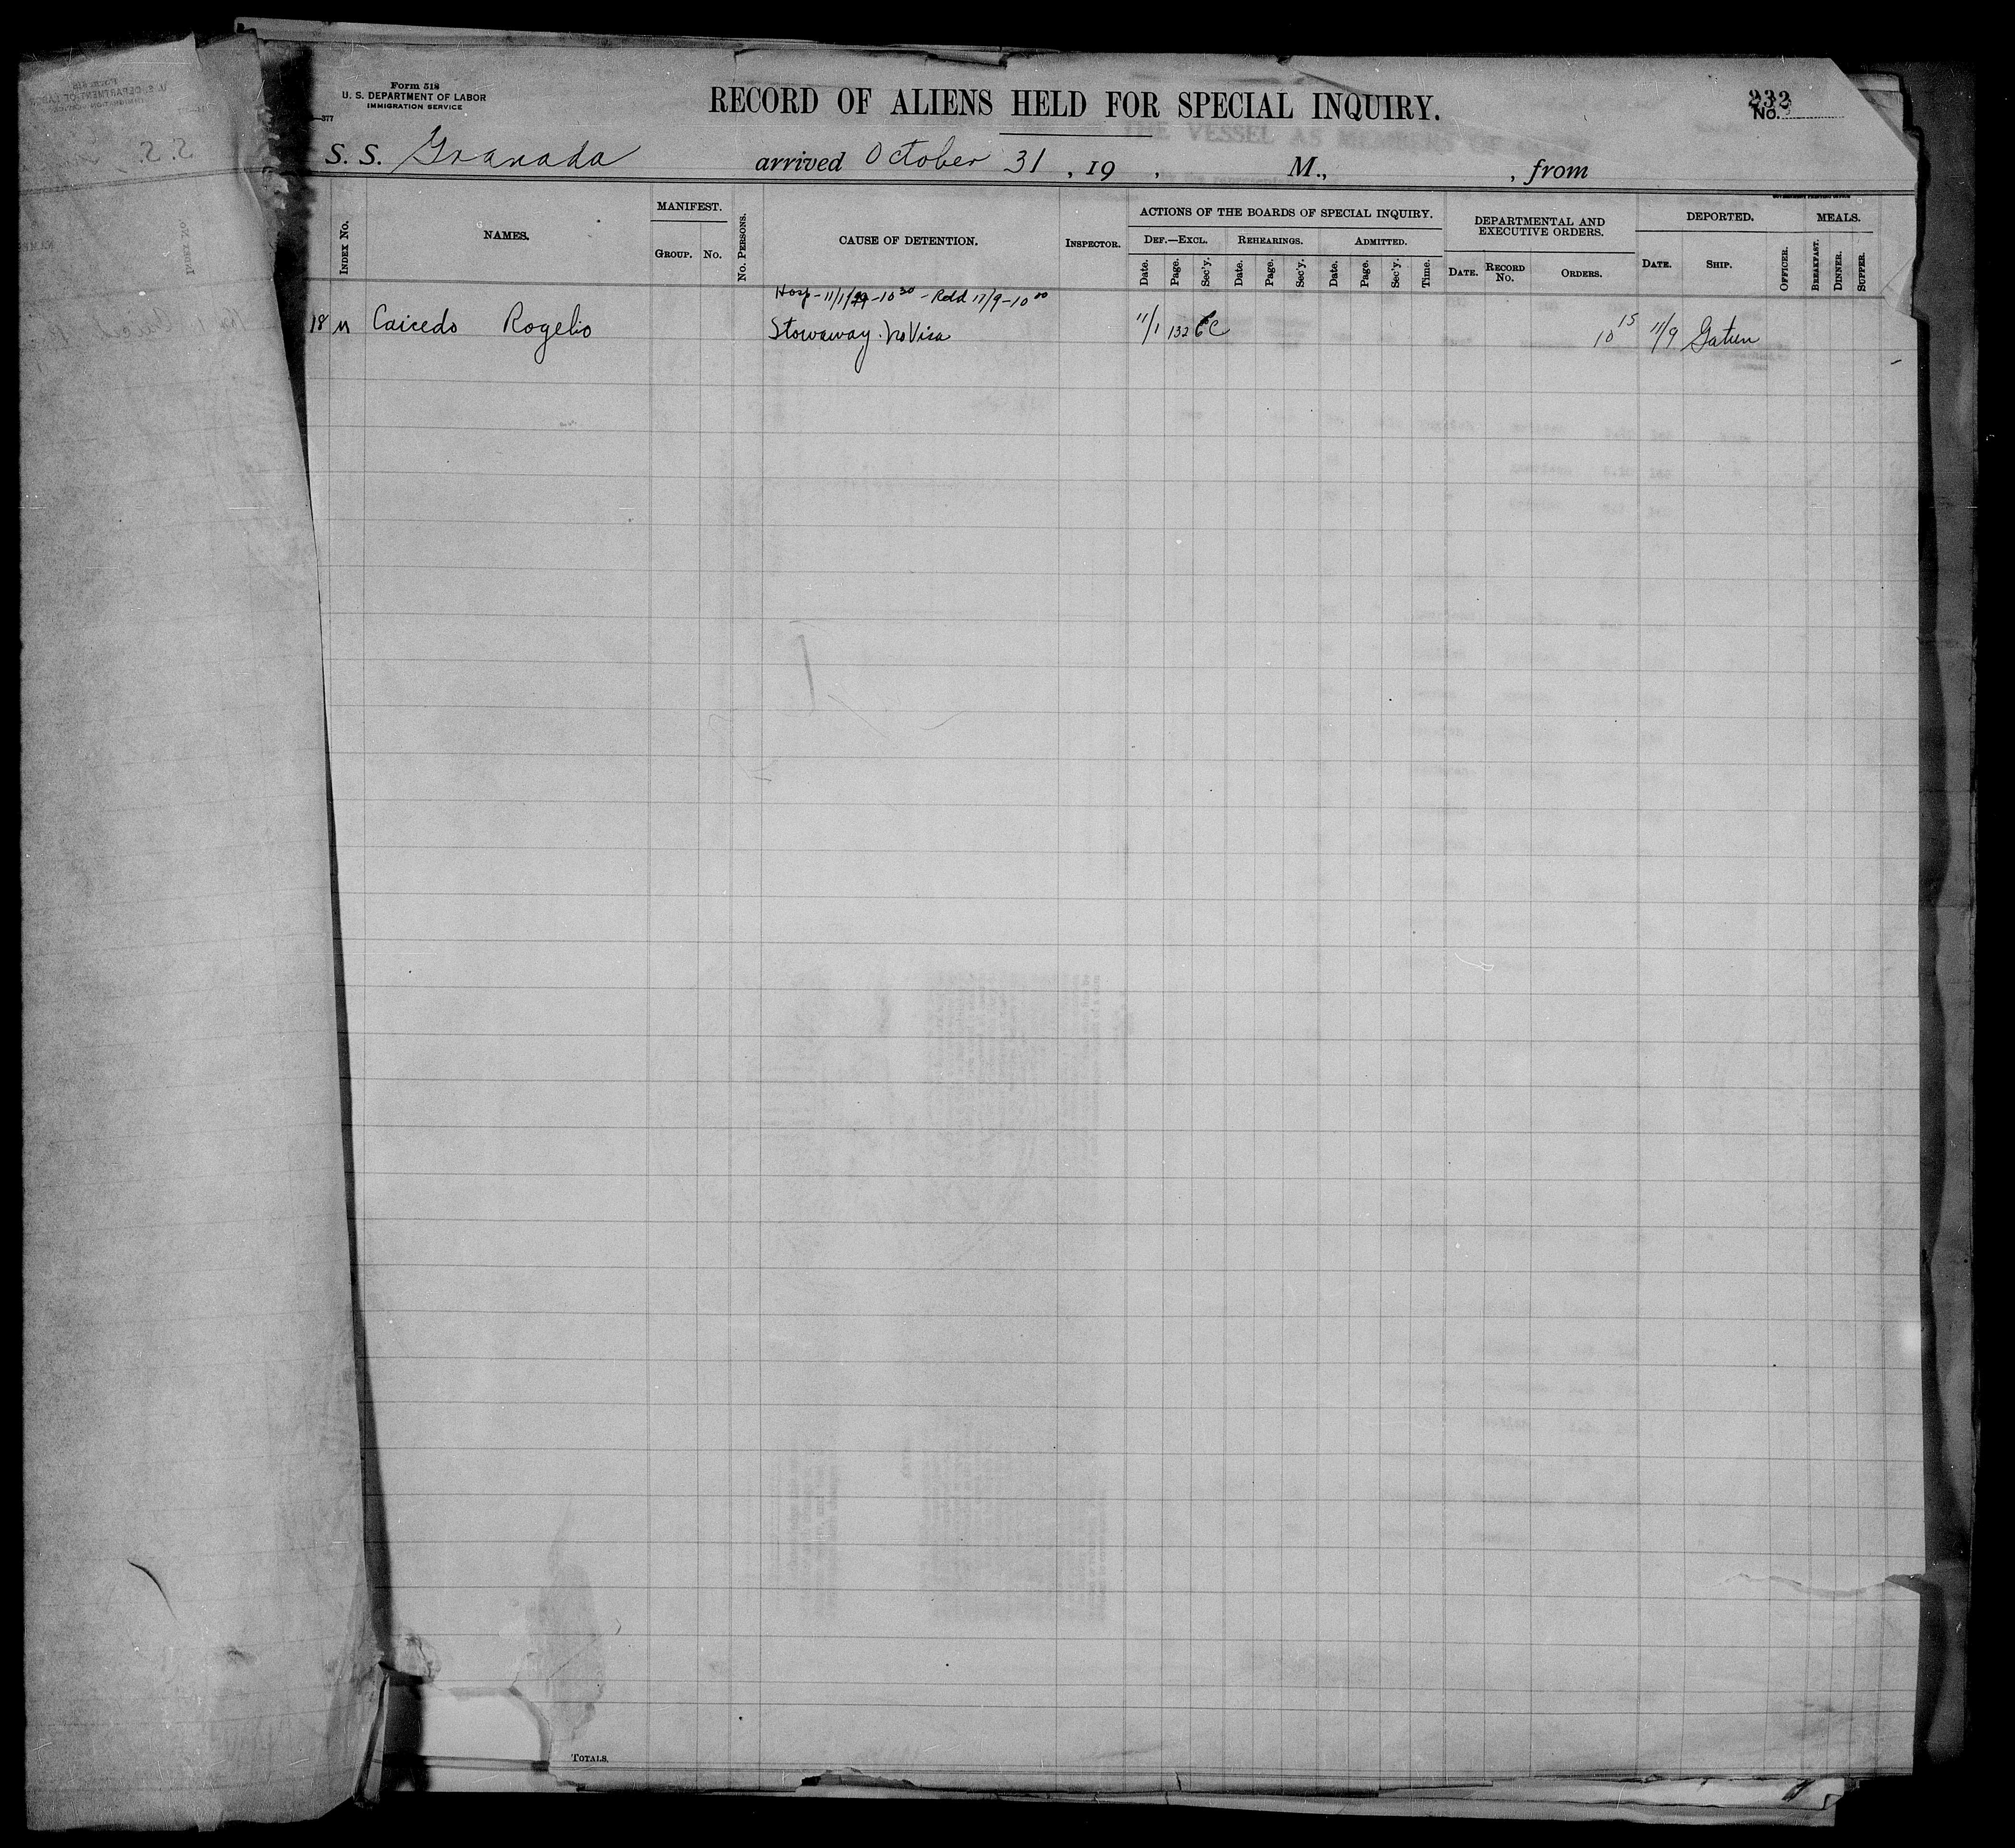 Form 518
U. S. DEPARTMENT OF LABOR
IMMIGRATION SERVICE
RECORD OF ALIENS HELD FOR SPECIAL INQUIRY.
232
No.
—377
S. S. Granada arrived October 31, 19 , M., , from
INDEX No.
NAMES.
MANIFEST.
GROUP. No.
No. PERSONS.
CAUSE OF DETENTION.
INSPECTOR.
ACTIONS OF THE BOARDS OF SPECIAL INQUIRY.
DEF.—EXCL. REHEARINGS. ADMITTED.
Date. Page. Sec'y. Date. Page. Sec'y. Date. Page. Sec'y. Time.
DEPARTMENTAL AND
EXECUTIVE ORDERS.
DATE. RECORD No. ORDERS.
DEPORTED.
DATE. SHIP. OFFICER.
MEALS.
BREAKFAST. DINNER. SUPPER.
Hosp - 11/1/29 - 10 30 - Reld 11/9 - 10 00
18 M Caicedo Rogelio Stowaway. No Visa 11/1 132 10 15 11/9 Gatun
TOTALS.